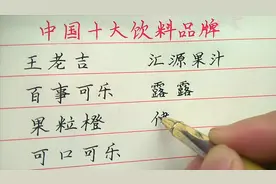 中国十大饮料品牌
王老吉 汇源果汁
百事可乐 露露
果粒橙
可口可乐